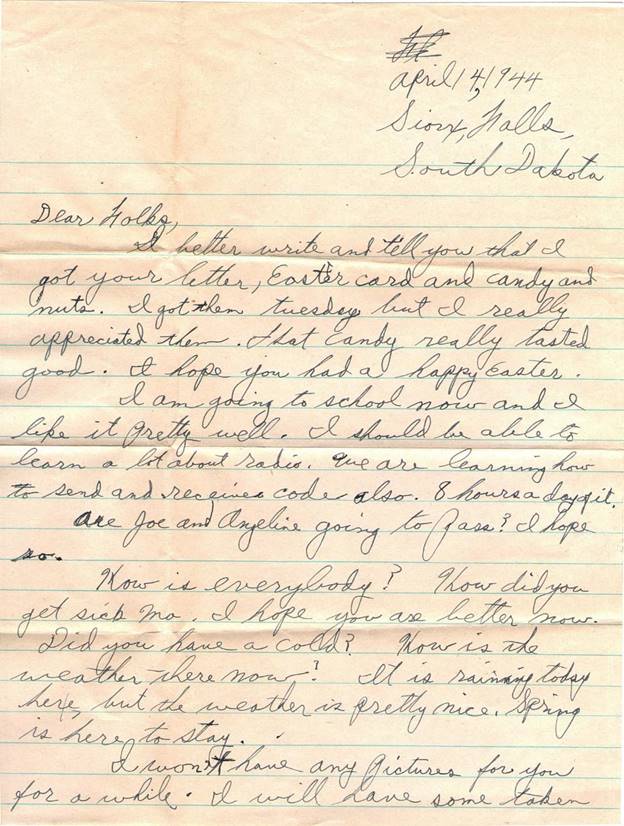 April 14, 1944
Sioux, Falls,
South Dakota
Dear Folks,
I better write and tell you that I
got your letter, Easter card and candy and
nuts. I got them tuesday but I really
appreciated them. That candy really tasted
good. I hope you had a happy Easter.
I am going to school now and I
like it pretty well. I should be able to
learn a lot about radio. We are learning how
to send and receive code also. 8 hours a day of it.
Are Joe and Angeline going to pass? I hope
so.
How is everybody? How did you
get sick Ma. I hope you are better now.
Did you have a cold? How is the
weather there now? It is raining today
here, but the weather is pretty nice. Spring
is here to stay.
I won't have any pictures for you
for a while. I will have some taken